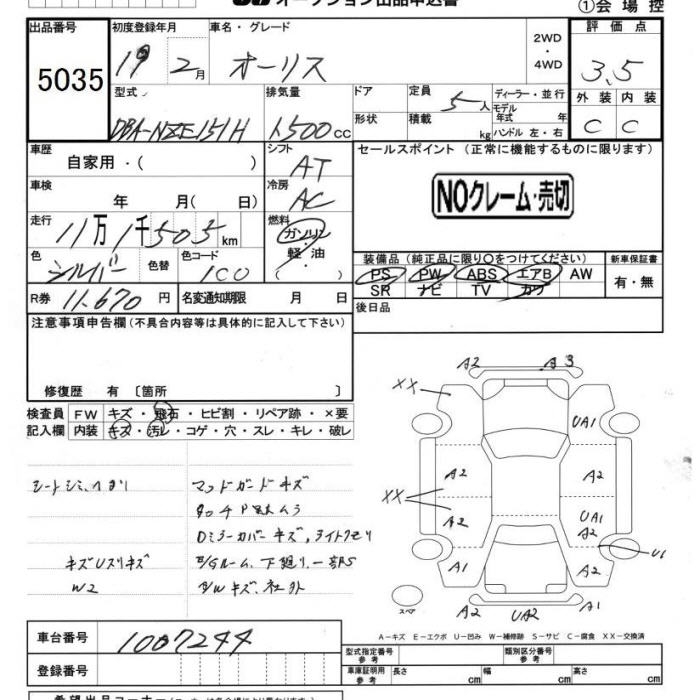 オークション出品申込書
①会場控
出品番号 初度登録年月 車名・グレード 2WD 評価点
5035 19 2月 オーリス ・4WD 3.5
型式 排気量 ドア 定員 5人 ディーラー・並行 外装 内装
DBA-NZE151H 1500cc 形状 積載 kg モデル年式 年 ハンドル 左・右 C C
車歴 シフト セールスポイント (正常に機能するものに限ります)
自家用・( ) AT
車検 冷房 NOクレーム・売切
年 月( 日) AC
走行 11万1千505km 燃料 ガソリン
色 色替 色コード 軽油 装備品 (純正品に限り○をつけてください) 新車保証書
シルバー 1C0 ( ) PS PW ABS エアB AW 有・無
R券 11.670円 名変通知期限 月 日 SR ナビ TV カワ
注意事項申告欄(不具合内容等は具体的に記入して下さい) 後日品
修復歴 有 〔箇所 〕
検査員 FW キズ・飛石・ヒビ割・リペア跡・×要
記入欄 内装 キズ・汚レ・コゲ・穴・スレ・キレ・破レ
マッドガードキズ
Dミラーカバーキズ、ライトクモリ
キズUスリキズ
W2
A2 A3
XX UA1
A2 A2
XX
A2 UA1
A2
A1 A2 U1
スペア A2 UA2 A1
A-キズ E-エクボ U-凹み W-補修跡 S-サビ C-腐食 XX-交換済
車台番号 1007244 型式指定番号 参考 類別区分番号 参考
登録番号 車庫証明用 参考 長さ cm 幅 cm 高さ cm